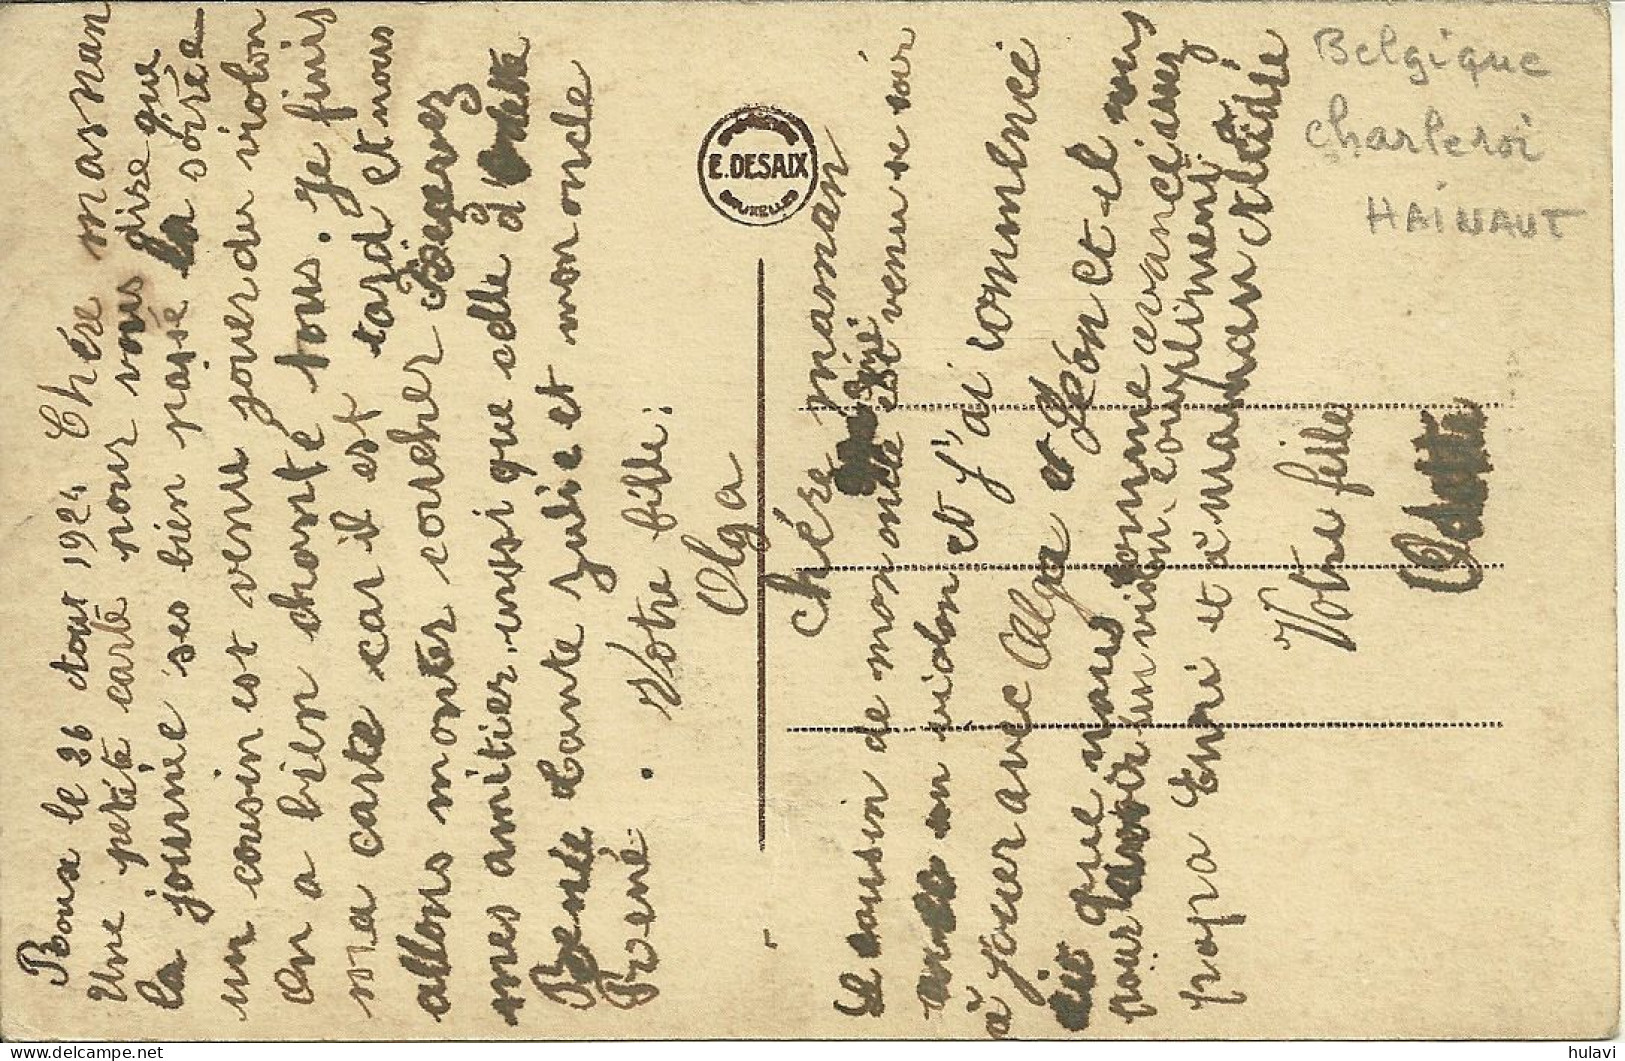 Boux le 26 Aout 1924 Chére maman
Une petite carte pour vous dire que
la journée ses bien passée la soirée
un cousin est venu jouer du violon
on a bien chanté tous. Je finis
ma carte car il est tard et nous
allons monter coucher Recevez
mes amitier aussi que celle d'Odette
tante Julie et mon oncle
René. Votre fille:
Olga
E. DESAIX
BRUXELLES
Chére maman
le cousin de mon oncle René est venu se soir
avec son violon et j'ai commencé
à jouer avec Olga et Léon et il
dit que nous somme avancé assez
pour avoir un violon. compliment à
papa Emi et à maman Clotide
Votre fille
Odette
Belgique
Charleroi
HAINAUT
hulavi